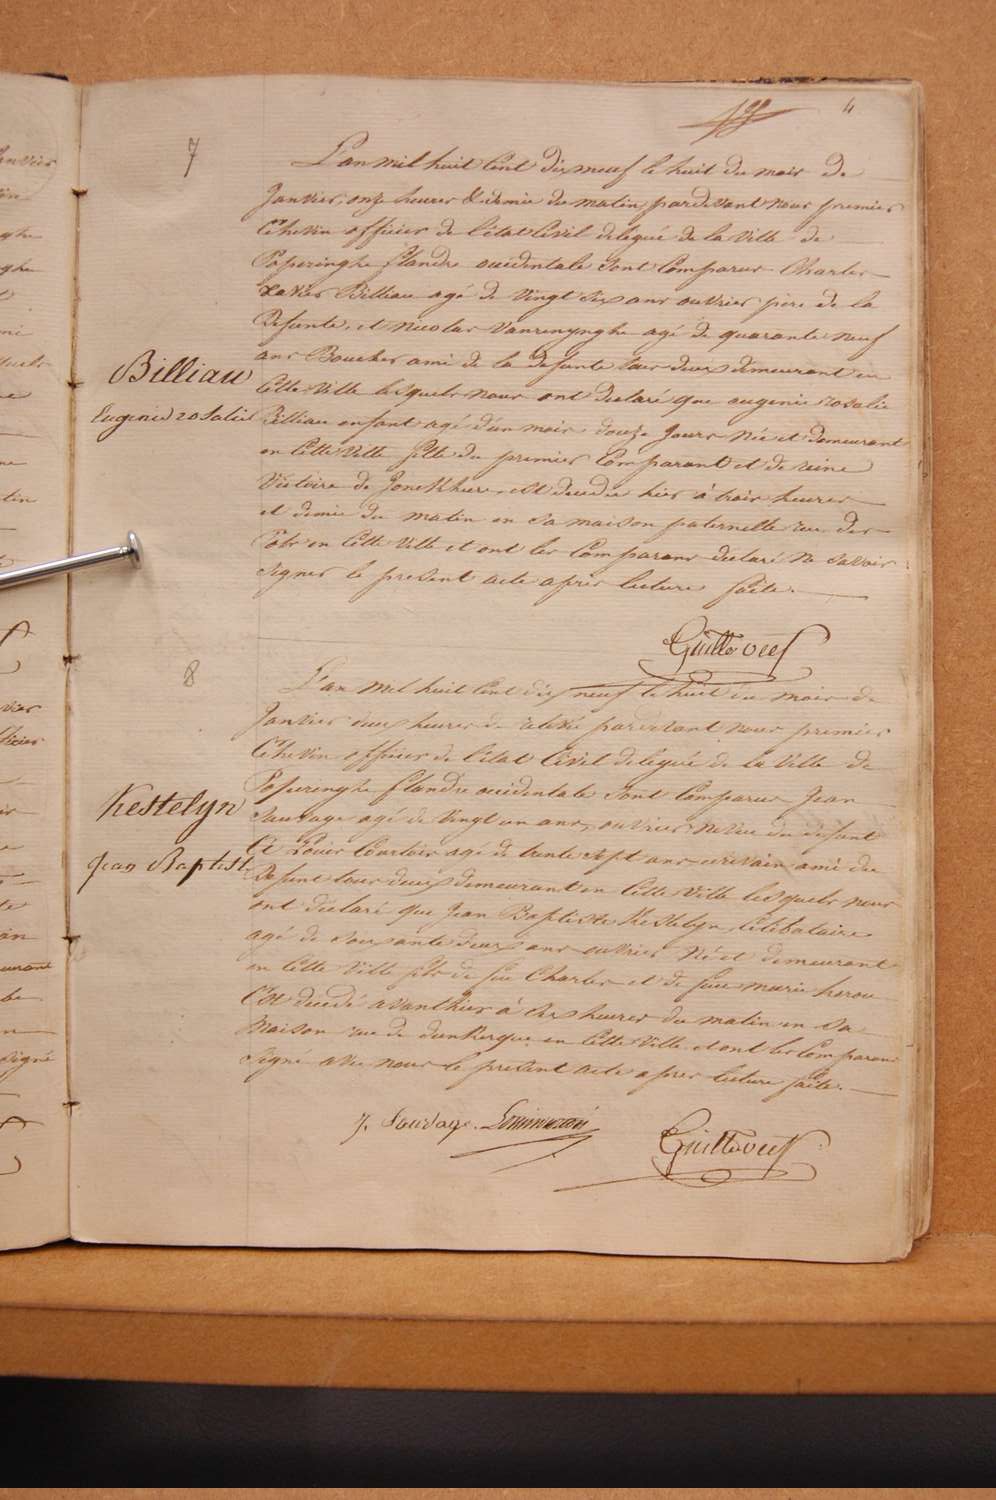 4
7
L'an mil huit Cent dix neuf le huit du mois de
Janvier, onze heures & demie du matin, pardevant nous premier
Echevin officier de l'état Civil delegué de la Ville de
Poperinghe flandre occidentale sont Comparus Charles
Xavier Billiau agé de Vingt Six ans ouvrier pere de la
Defunte, et Nicolas Vanrenynghe agé de quarante neuf
ans Boucher ami de la defunte tous deux demeurant en
Cette Ville lesquels nous ont declaré que eugenie rosalie
Billiau enfant agé d'un mois douze Jours Née et demeurant
en Cette Ville fille du premier Comparant et de reine
Victoire de Jonckheere, est decedée hier à trois heures
et demie du matin en sa maison paternelle rue des
Pots en Cette Ville et ont les Comparans declaré Ne savoir
signer le present acte apres lecture faite.
Billiau
Eugenie rosalie
8
L'an mil huit Cent dix neuf le huit du mois de
Janvier deux heures de relevée pardevant nous premier
Echevin officier de l'état Civil delegué de la Ville de
Poperinghe flandre occidentale sont Comparus Jean
Sauvage agé de Vingt un ans, ouvrier neveu du defunt
Et Louis Courtois agé de trente sept ans ecrivain ami du
Defunt tous deux demeurant en Cette Ville lesquels nous
ont declaré que Jean Baptiste Kestelyn, Célibataire
agé de soixante deux ans ouvrier Né et demeurant
en Cette Ville fils de feu Charles et de feue marie herou
Est decedé avanthier à Six heures du matin en sa
Maison rue de dunkerque en Cette Ville et ont les Comparans
Signé avec nous le present acte apres lecture faite.
Kestelyn
Jean Baptiste
J. Sauvage